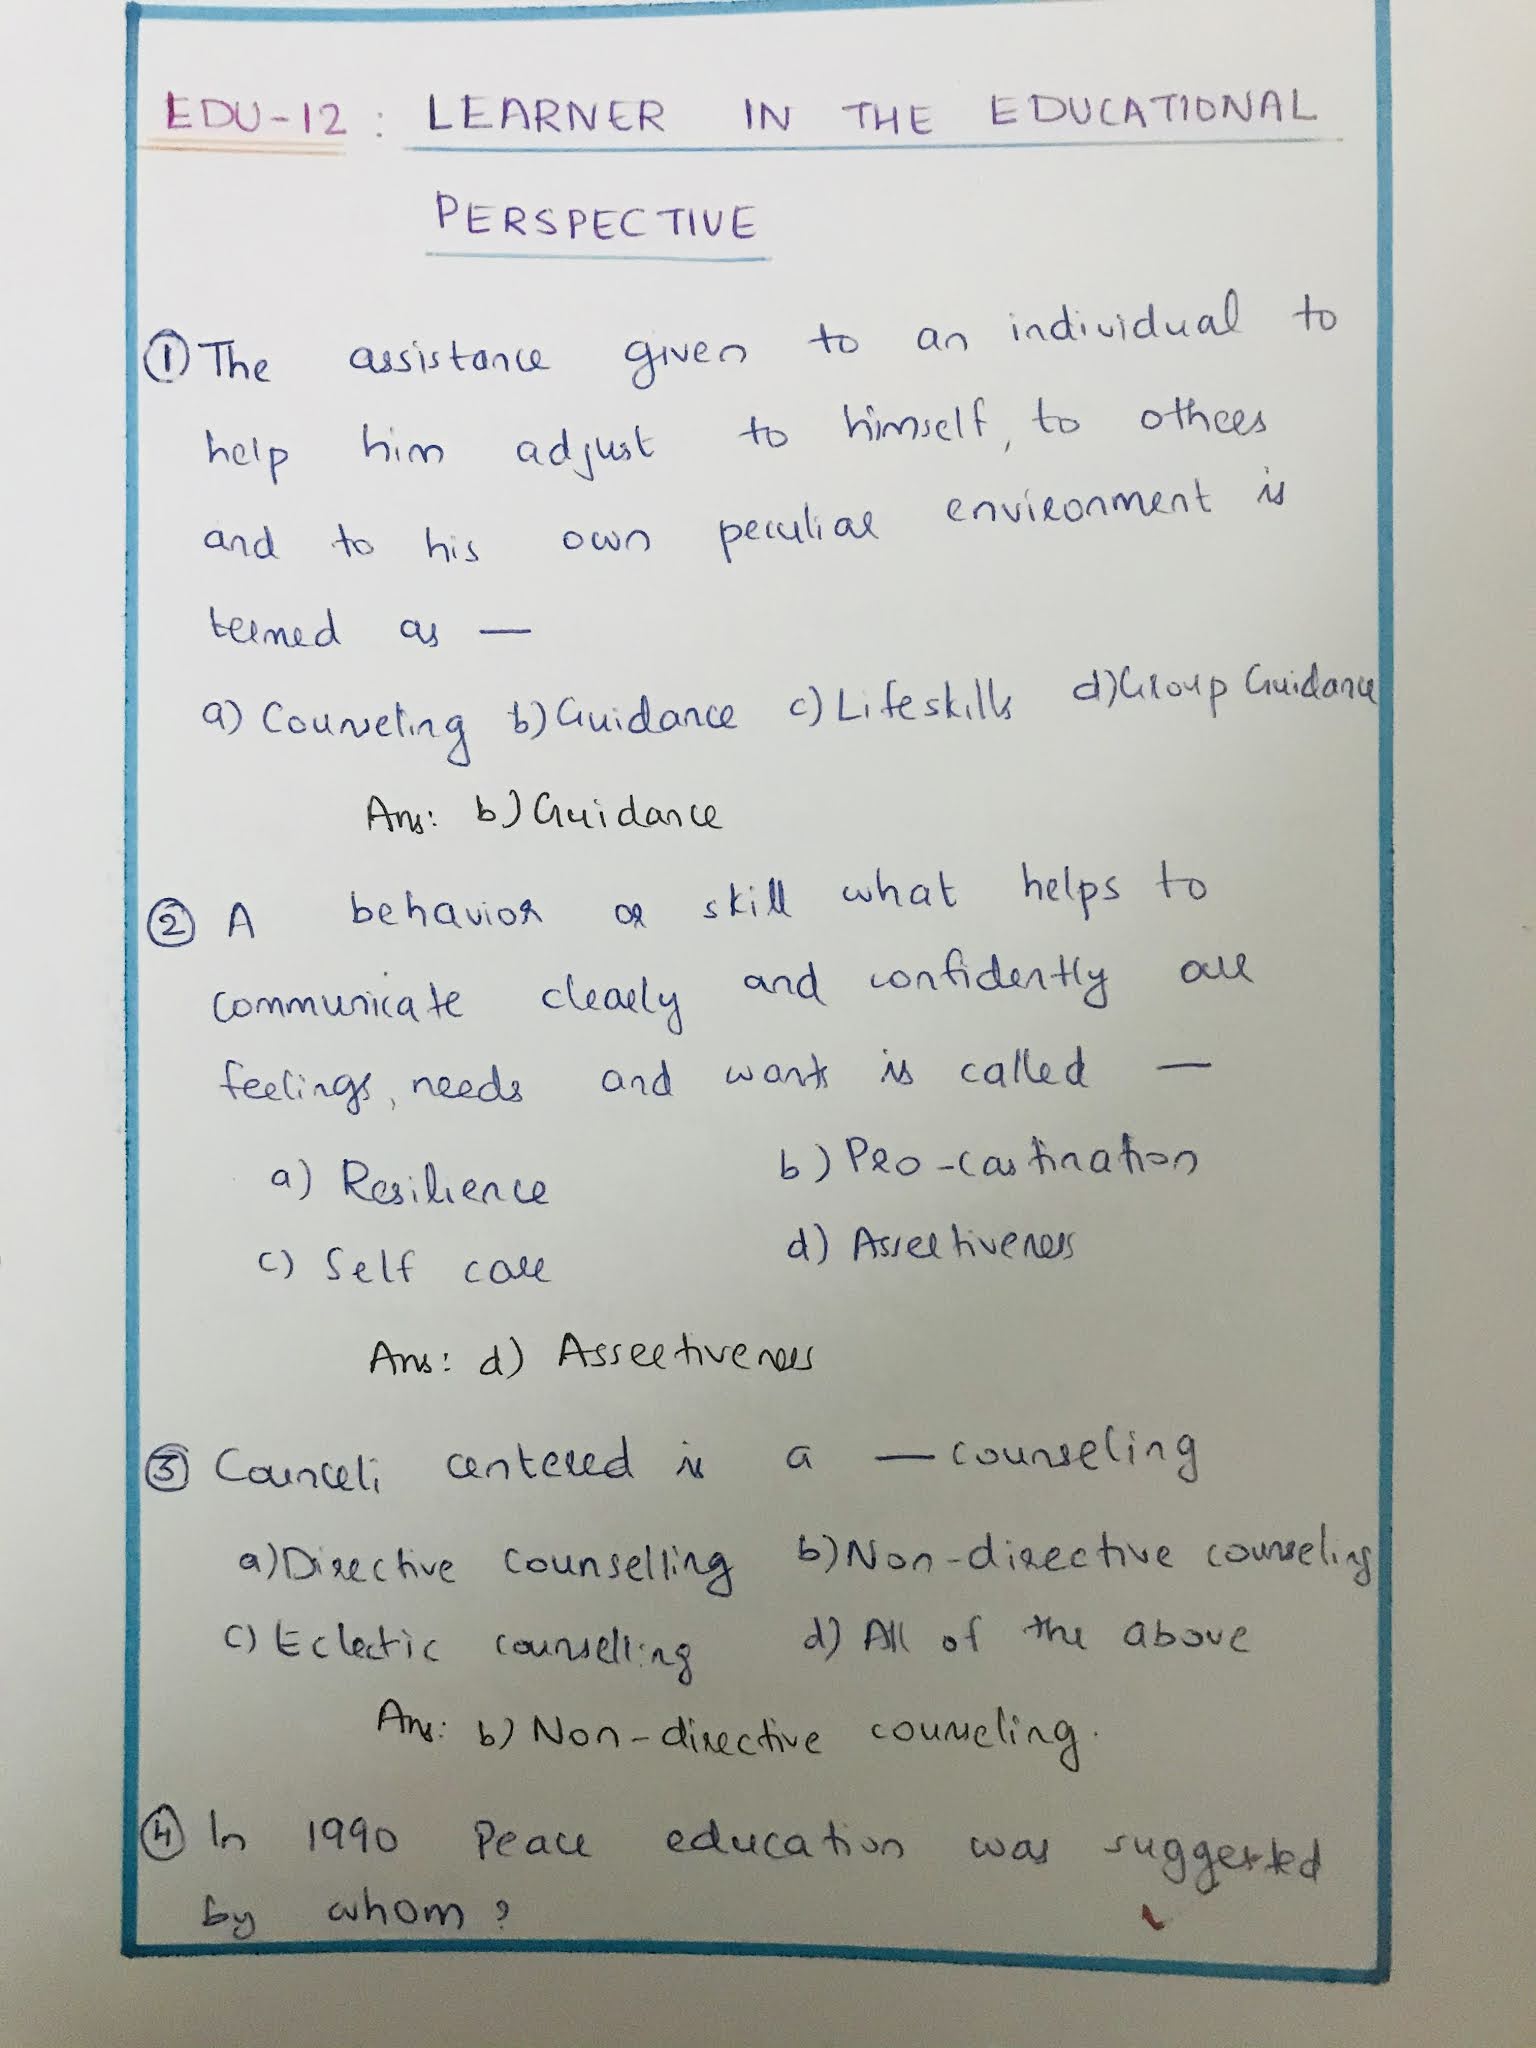 EDU-12 : LEARNER IN THE EDUCATIONAL
PERSPECTIVE
① The assistance given to an individual to
help him adjust to himself, to others
and to his own peculiar environment is
termed as —
a) Counseling b) Guidance c) Lifeskills d) Group Guidance
Ans: b) Guidance
② A behavior or skill what helps to
communicate clearly and confidently are
feelings, needs and wants is called —
a) Resilience b) Pro-castination
c) Self care d) Assertiveness
Ans: d) Assertiveness
③ Counceli centered is a — counseling
a) Directive counselling b) Non-directive counseling
c) Eclectic counselling d) All of the above
Ans: b) Non-directive counseling.
④ In 1990 Peace education was suggested
by whom?